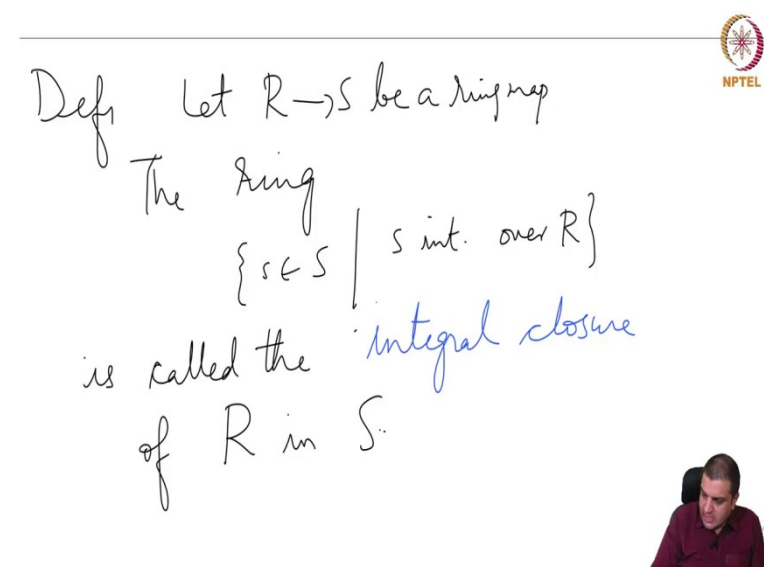 NPTEL
Defn Let R→S be a ring map
The ring
{s∈S | s int. over R}
is called the integral closure
of R in S.